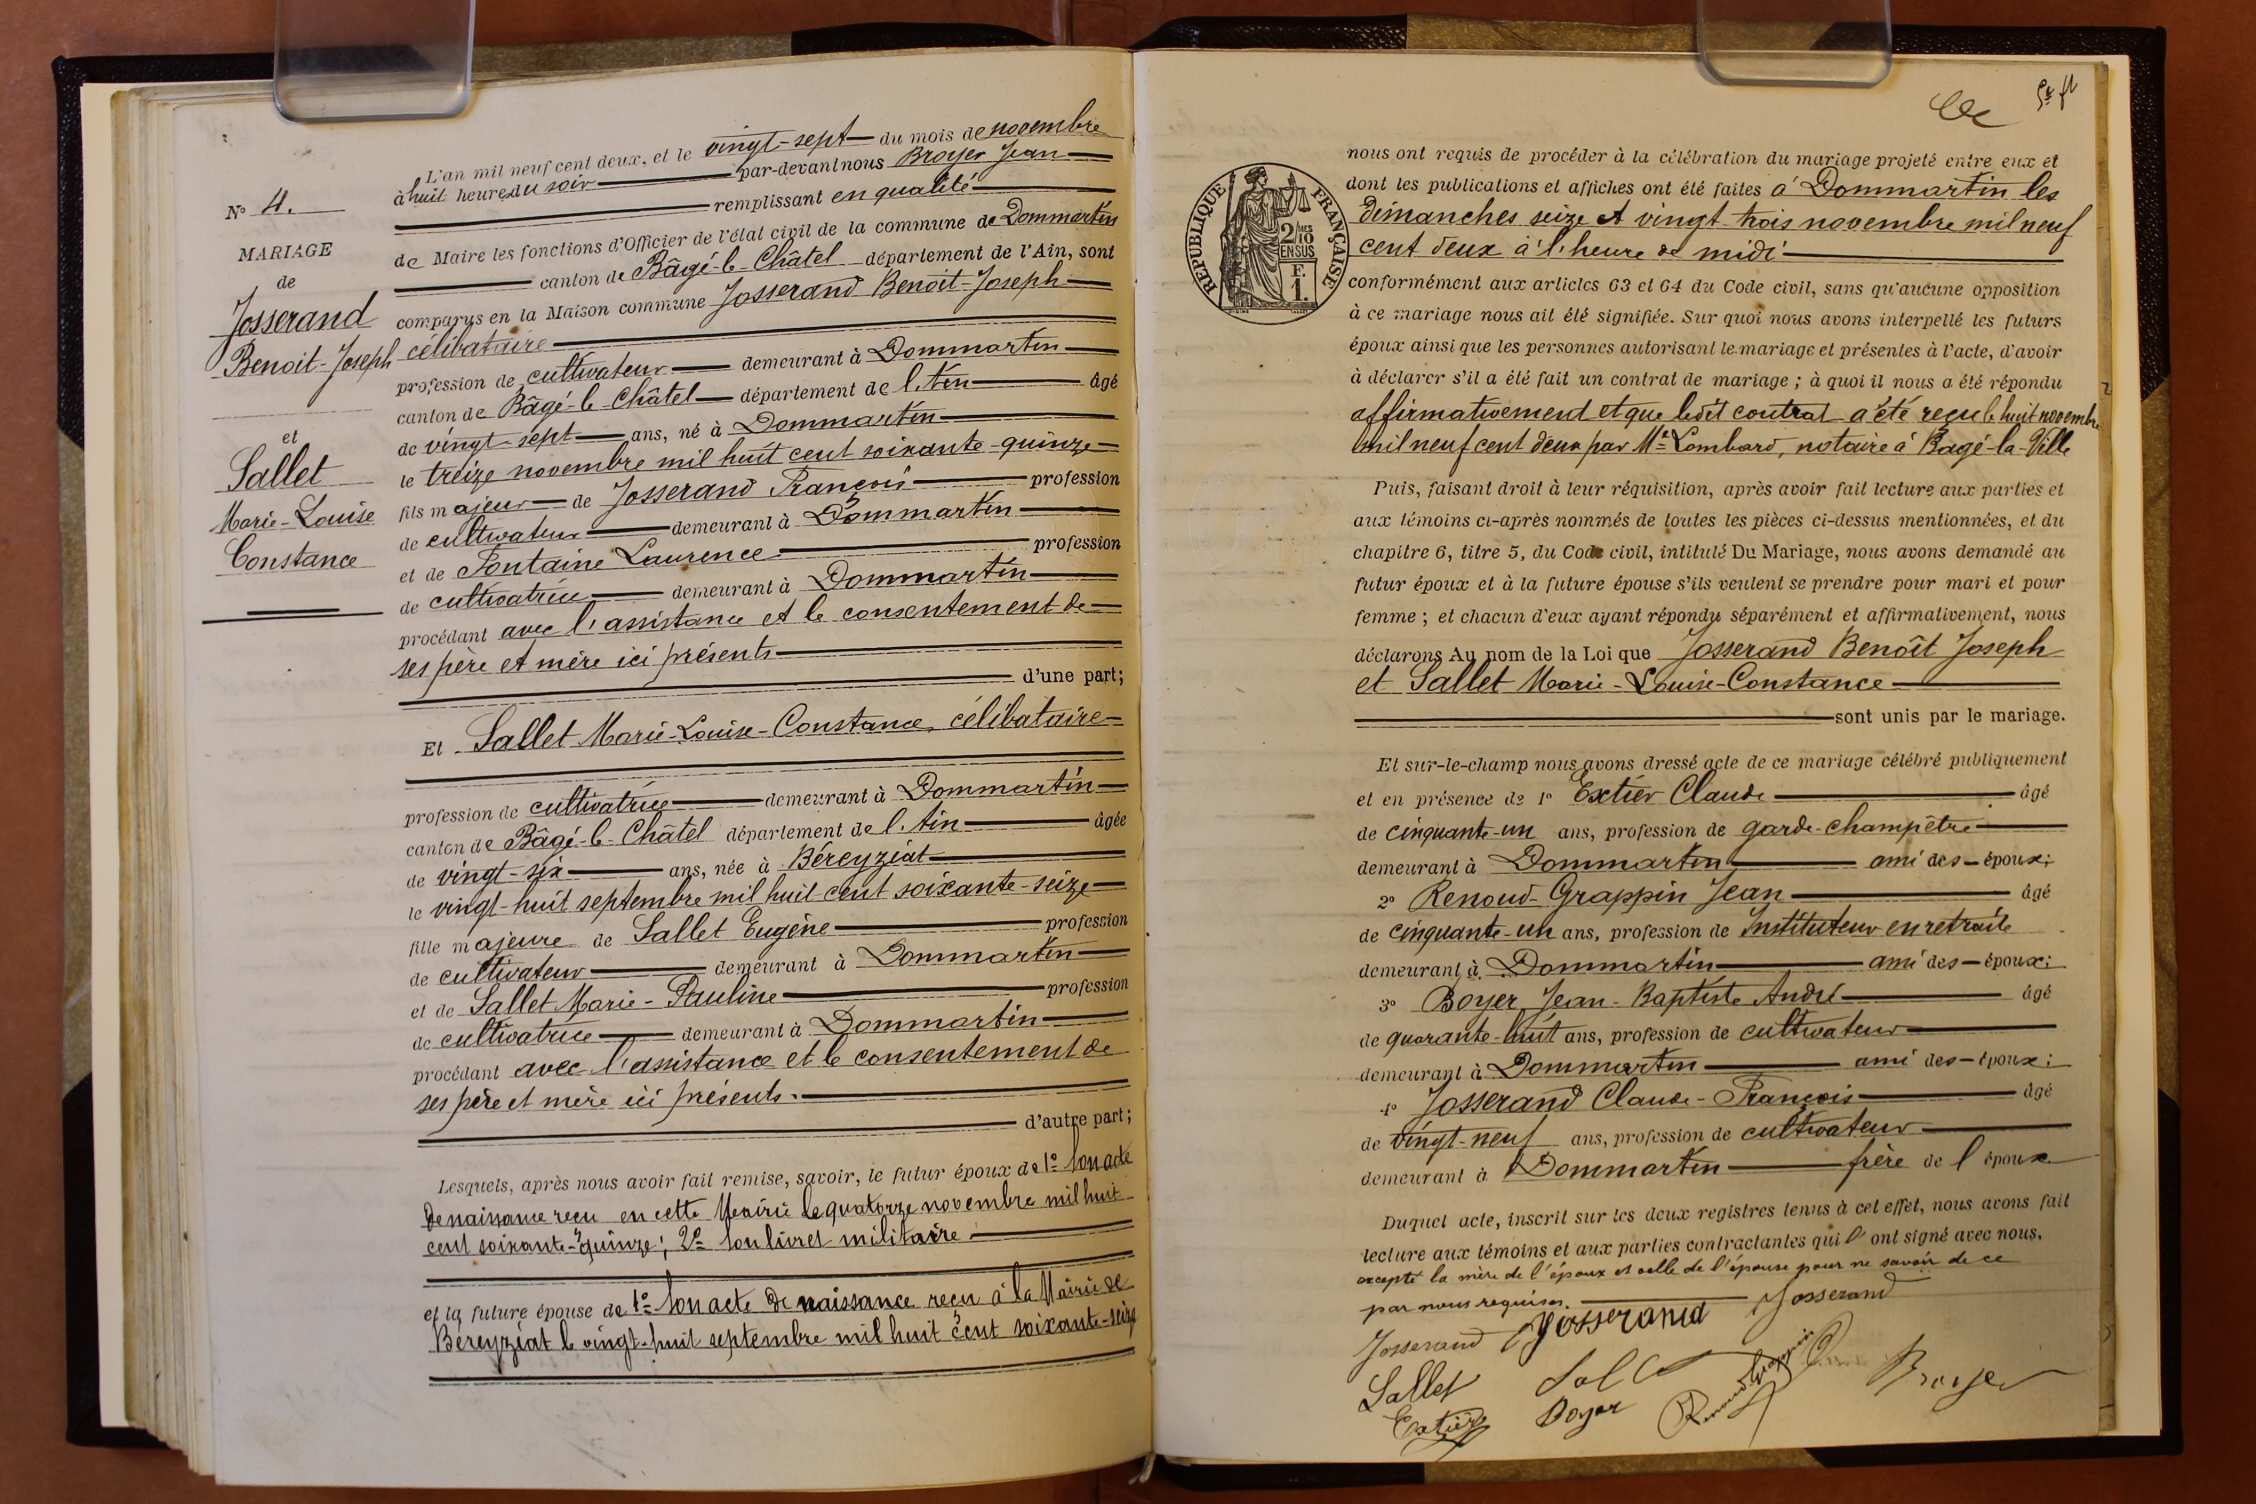 L'an mil neuf cent deux, et le vingt-sept du mois de novembre
à huit heures du soir par-devant nous Broyer Jean
remplissant en qualité
de Maire les fonctions d'Officier de l'état civil de la commune de Dommartin
canton de Bâgé-le-Châtel département de l'Ain, sont
comparus en la Maison commune Josserand Benoit-Joseph
célibataire
profession de cultivateur demeurant à Dommartin
canton de Bâgé-le-Châtel département de l'Ain âgé
de vingt-sept ans, né à Dommartin
le treize novembre mil huit cent soixante-quinze
fils majeur de Josserand François profession
de cultivateur demeurant à Dommartin
et de Fontaine Laurence profession
de cultivatrice demeurant à Dommartin
procédant avec l'assistance et le consentement de
ses père et mère ici présents
d'une part;
Et Sallet Marie-Louise-Constance, célibataire
profession de cultivatrice demeurant à Dommartin
canton de Bâgé-le-Châtel département de l'Ain âgée
de vingt-six ans, née à Béreyziat
le vingt-huit septembre mil huit cent soixante-seize
fille majeure de Sallet Eugène profession
de cultivateur demeurant à Dommartin
et de Sallet Marie-Pauline profession
de cultivatrice demeurant à Dommartin
procédant avec l'assistance et le consentement de
ses père et mère ici présents.
d'autre part;
Lesquels, après nous avoir fait remise, savoir, le futur époux de 1º son acte
de naissance reçu en cette Mairie le quatorze novembre mil huit
cent soixante-quinze; 2º son livret militaire
et la future épouse de 1º son acte de naissance reçu à la Mairie de
Béreyziat le vingt-huit septembre mil huit cent soixante-seize
Nº 4.
MARIAGE
de
Josserand
Benoit-Joseph
et
Sallet
Marie-Louise
Constance
RÉPUBLIQUE FRANÇAISE
2/10
EN SUS
F.
1.
nous ont requis de procéder à la célébration du mariage projeté entre eux et
dont les publications et affiches ont été faites à Dommartin les
dimanches seize et vingt-trois novembre mil neuf
cent deux à l'heure de midi
conformément aux articles 63 et 64 du Code civil, sans qu'aucune opposition
à ce mariage nous ait été signifiée. Sur quoi nous avons interpellé les futurs
époux ainsi que les personnes autorisant le mariage et présentes à l'acte, d'avoir
à déclarer s'il a été fait un contrat de mariage; à quoi il nous a été répondu
affirmativement et que ledit contrat a été reçu le huit novembre
mil neuf cent deux par Me Lombard, notaire à Bâgé-la-Ville
Puis, faisant droit à leur réquisition, après avoir fait lecture aux parties et
aux témoins ci-après nommés de toutes les pièces ci-dessus mentionnées, et du
chapitre 6, titre 5, du Code civil, intitulé Du Mariage, nous avons demandé au
futur époux et à la future épouse s'ils veulent se prendre pour mari et pour
femme; et chacun d'eux ayant répondu séparément et affirmativement, nous
déclarons Au nom de la Loi que Josserand Benoît Joseph
et Sallet Marie-Louise-Constance
sont unis par le mariage.
Et sur-le-champ nous avons dressé acte de ce mariage célébré publiquement
et en présence de 1º Extier Claude âgé
de cinquante-un ans, profession de garde-champêtre
demeurant à Dommartin ami des époux;
2º Renoud-Grappin Jean âgé
de cinquante-un ans, profession de Instituteur en retraite
demeurant à Dommartin ami des époux;
3º Boyer Jean-Baptiste André âgé
de quarante-huit ans, profession de cultivateur
demeurant à Dommartin ami des époux;
4º Josserand Claude-François âgé
de vingt-neuf ans, profession de cultivateur
demeurant à Dommartin frère de l'époux
Duquel acte, inscrit sur les deux registres tenus à cet effet, nous avons fait
lecture aux témoins et aux parties contractantes qui l'ont signé avec nous,
excepté la mère de l'époux et celle de l'épouse pour ne savoir de ce
par nous requises.
Josserand Josserand Josserand
Sallet Renoud Grappin Broyer
Extier Boyer